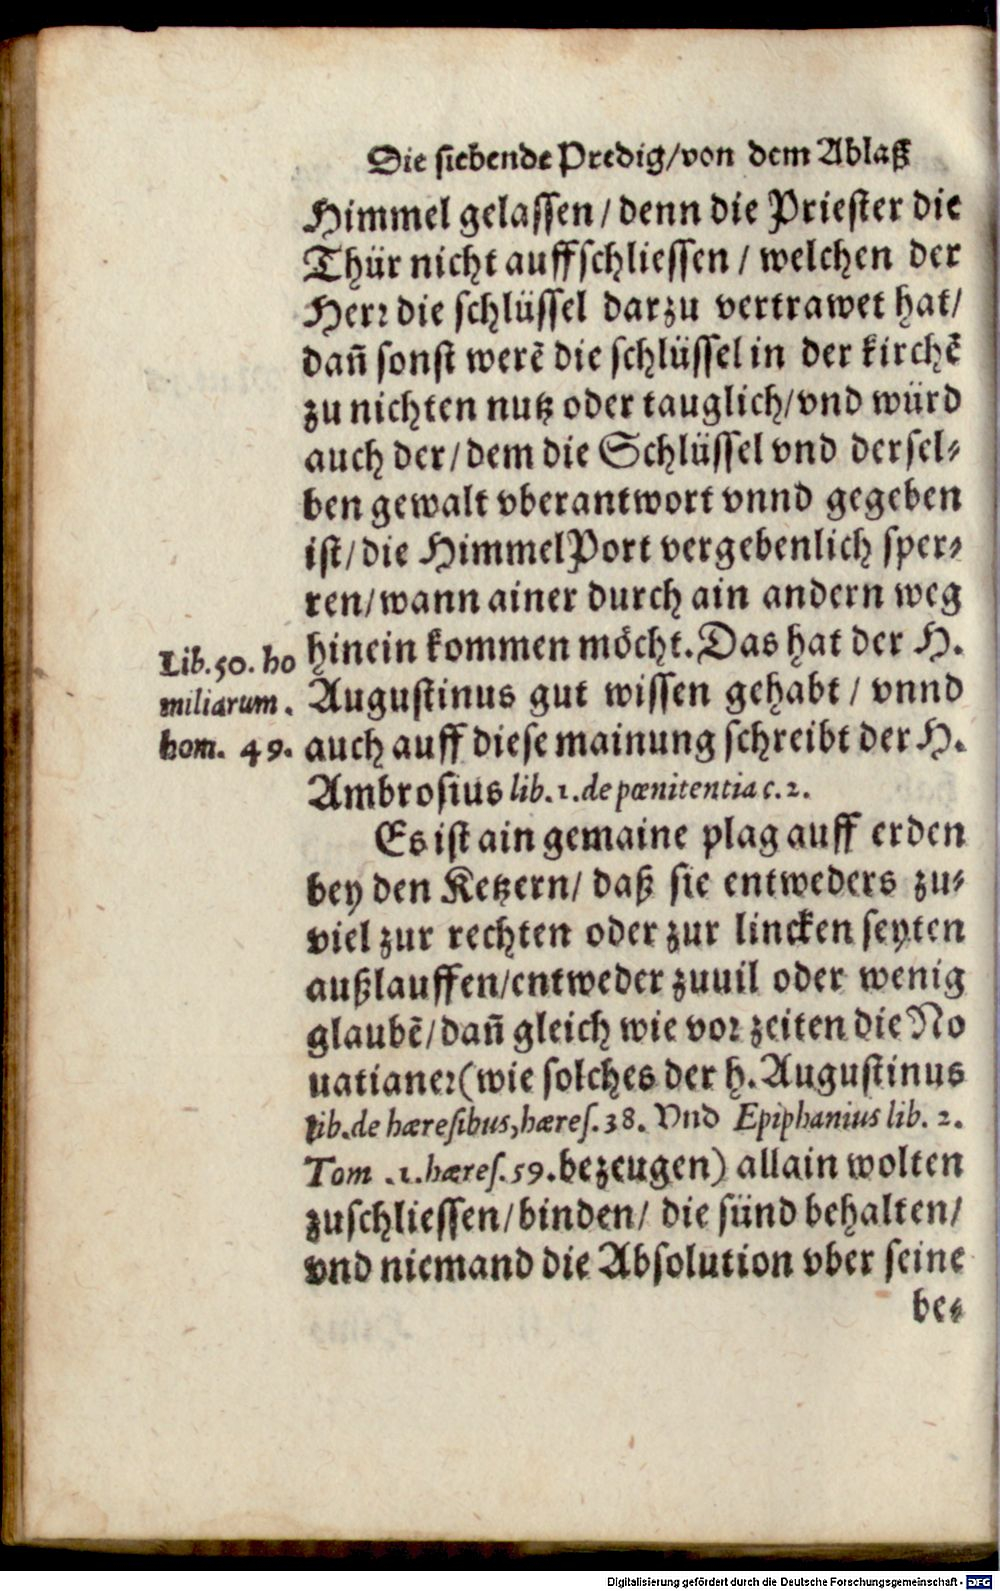 Die siebende Predig/von dem Ablaß
Himmel gelassen/denn die Priester die
Thür nicht auffschliessen/welchen der
Herr die schlüssel darzu vertrawet hat/
dañ sonst werẽ die schlüssel in der kirchẽ
zu nichten nutz oder tauglich/vnd würd
auch der/dem die Schlüssel vnd dersel-
ben gewalt vberantwort vnnd gegeben
ist/die HimmelPort vergebenlich sper-
ren/wann ainer durch ain andern weg
hinein kommen möcht. Das hat der H.
Augustinus gut wissen gehabt/vnnd
auch auff diese mainung schreibt der H.
Ambrosius lib.1.de pœnitentia c.2.
Lib.50.ho
miliarum.
hom. 49.
Es ist ain gemaine plag auff erden
bey den Ketzern/daß sie entweders zu-
viel zur rechten oder zur lincken seyten
außlauffen/entweder zuuil oder wenig
glaubẽ/dañ gleich wie vor zeiten die No
uatianer(wie solches der h.Augustinus
lib.de hæresibus,hæres.38. Vnd Epiphanius lib. 2.
Tom .1.hæres.59.bezeugen) allain wolten
zuschliessen/binden/die sünd behalten/
vnd niemand die Absolution vber seine
be-
Digitalisierung gefördert durch die Deutsche Forschungsgemeinschaft - DFG